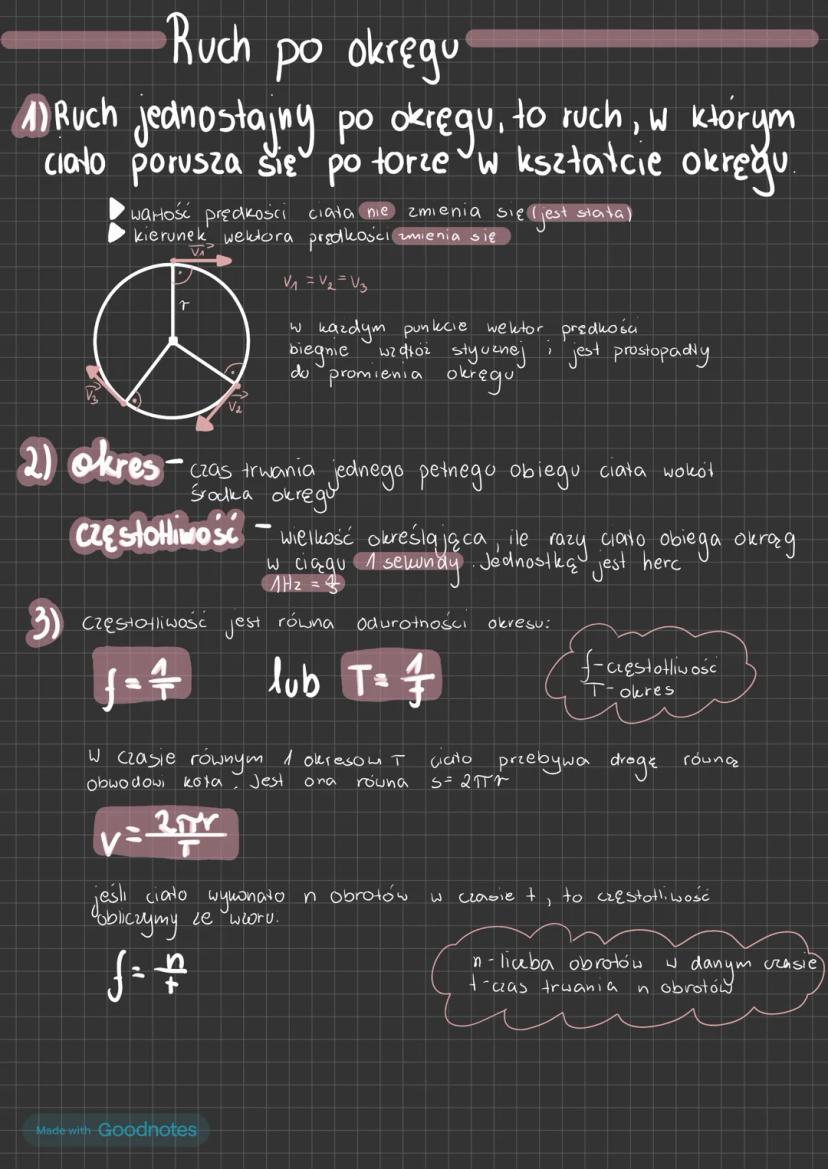 Ruch po okręgu
1) Ruch jednostajny po okręgu, to ruch, w którym
ciało porusza się po torze w kształcie okręgu.
wartość prędkości ciała nie zmienia się (jest stała)
kierunek wektora prędkości zmienia się
V₁
r
V₁ = V₂ = V₃
w każdym punkcie wektor prędkości
biegnie wzdłóż stycznej i jest prostopadły
do promienia okręgu
V₃
V₂
2) okres - czas trwania jednego pełnego obiegu ciała wokół
środka okręgu
częstotliwość - wielkość określająca, ile razy ciało obiega okrąg
w ciągu 1 sekundy. Jednostką jest herc
1Hz = 1/s
3) częstotliwość jest równa odwrotności okresu:
f = 1/T lub T = 1/f
f - częstotliwość
T - okres
W czasie równym 1 okresowi T ciało przebywa drogę równą
obwodowi koła. Jest ona równa s = 2πr
v = 2πr/T
jeśli ciało wykonało n obrotów w czasie t, to częstotliwość
obliczymy ze wzoru.
f = n/t
n - liczba obrotów w danym czasie
t - czas trwania n obrotów
Made with Goodnotes